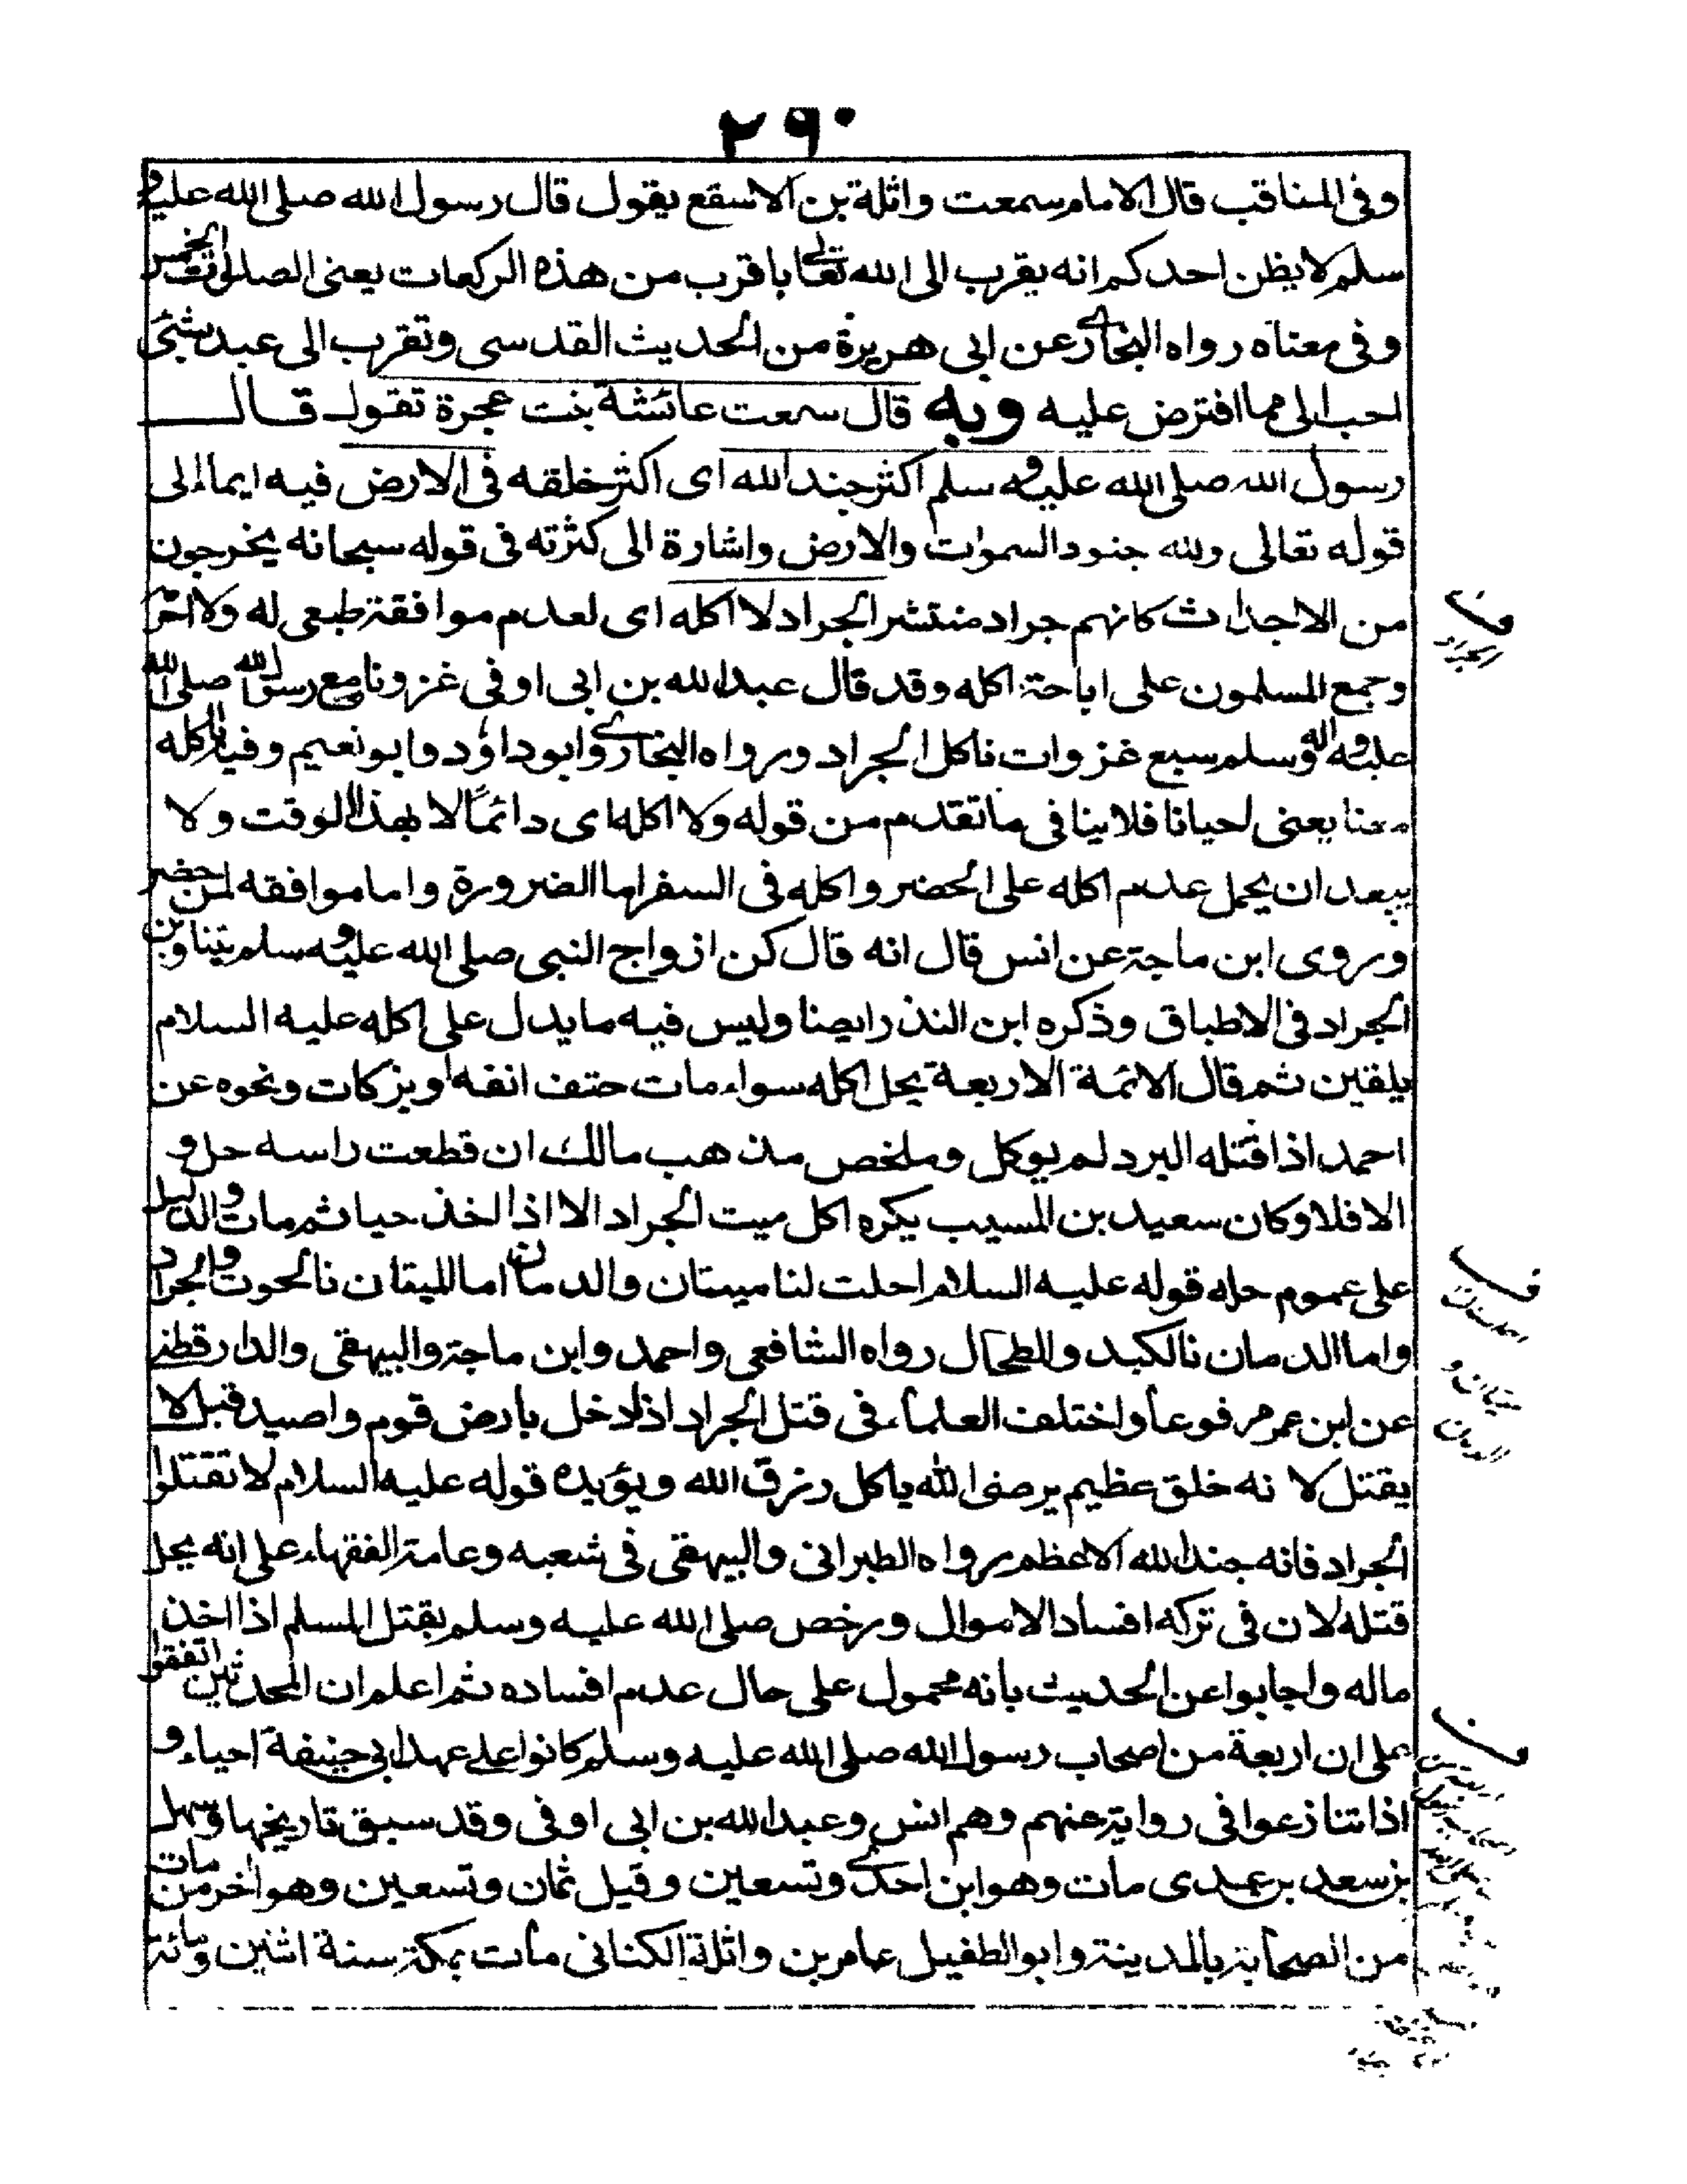 ٢٩٠
وفى المناقب قال الامام سمعت واثلة بن الاسقع يقول قال رسول الله صلى الله عليه و
سلم لا يظن احدكم انه يقرب الى الله تعالى باقرب من هذه الركعات يعنى الصلوات الخمس
وفى معناه رواه البخارى عن ابى هريرة من الحديث القدسى وتقرب الى عبد بشئ
احب الى مما افترض عليه وبه قال سمعت عائشة بنت عجرة تقول قال
رسول الله صلى الله عليه و سلم اكثر جند الله اى اكثر خلقه فى الارض فيه ايماء الى
قوله تعالى ولله جنود السموات والارض واشارة الى كثرته فى قوله سبحانه يخرجون
من الاجداث كانهم جراد منتشر الجراد لا اكله اى لعدم موافقة طبعى له ولا احرم
وجمع المسلمون على اباحة اكله وقد قال عبد الله بن ابى اوفى غزونا مع رسول الله صلى الله
عليه واله وسلم سبع غزوات ناكل الجراد ورواه البخارى وابوداؤد وابو نعيم وفيه ناكله
معنا يعنى احيانا فلا ينافى ما تقدم من قوله ولا اكله اى دائمًا لا بهذا الوقت ولا
يبعد ان يحمل عدم اكله على الحضر واكله فى السفر اما الضرورة واما موافقه لمن حضر
وروى ابن ماجة عن انس قال انه قال كن ازواج النبى صلى الله عليه و سلم يتناوبن
الجراد فى الاطباق وذكره ابن المنذر ايضا وليس فيه ما يدل على اكله عليه السلام
يلقين ثم قال الائمة الاربعة يحل اكله سواء مات حتف انفه او بزكات ونحوه عن
احمد اذا قتله البرد لم يوكل وملخص مذهب مالك ان قطعت راسه حل و
الا فلا وكان سعيد بن المسيب يكره اكل ميت الجراد الا اذا اخذ حيا ثم مات والدليل
على عموم حله قوله عليه السلام احلت لنا ميتتان والدمان اما الميتان نالحوت والجراد
واما الدمان نالكبد والطحال رواه الشافعى واحمد وابن ماجة والبيهقى والدارقطنى
عن ابن عمر مرفوعا واختلف العلماء فى قتل الجراد اذا دخل بارض قوم واصيد قبل لا
يقتل لا نه خلق عظيم يرضى الله ياكل رزق الله ويؤيده قوله عليه السلام لا تقتلوا
الجراد فانه جند الله الاعظم رواه الطبرانى والبيهقى فى شعبه وعامة الفقهاء على انه يحل
قتله لان فى تركه افساد الاموال ورخص صلى الله عليه وسلم بقتل المسلم اذا اخذ
ماله واجابوا عن الحديث بانه محمول على حال عدم افساده ثم اعلم ان المحدثين اتفقوا
على ان اربعة من اصحاب رسول الله صلى الله عليه وسلم كانوا على عهد ابى حنيفة احياء و
اذا تنازعوا فى رواية عنهم وهم انس وعبد الله بن ابى اوفى وقد سبق تاريخها وسهل
بن سعد بر عمدى مات وهو ابن احدى وتسعين وقيل ثمان وتسعين وهو اخر من مات
من الصحابة بالمدينة وابو الطفيل عامر بن واثلة الكنانى مات بمكة سنة اثنين ومائة
الجراد